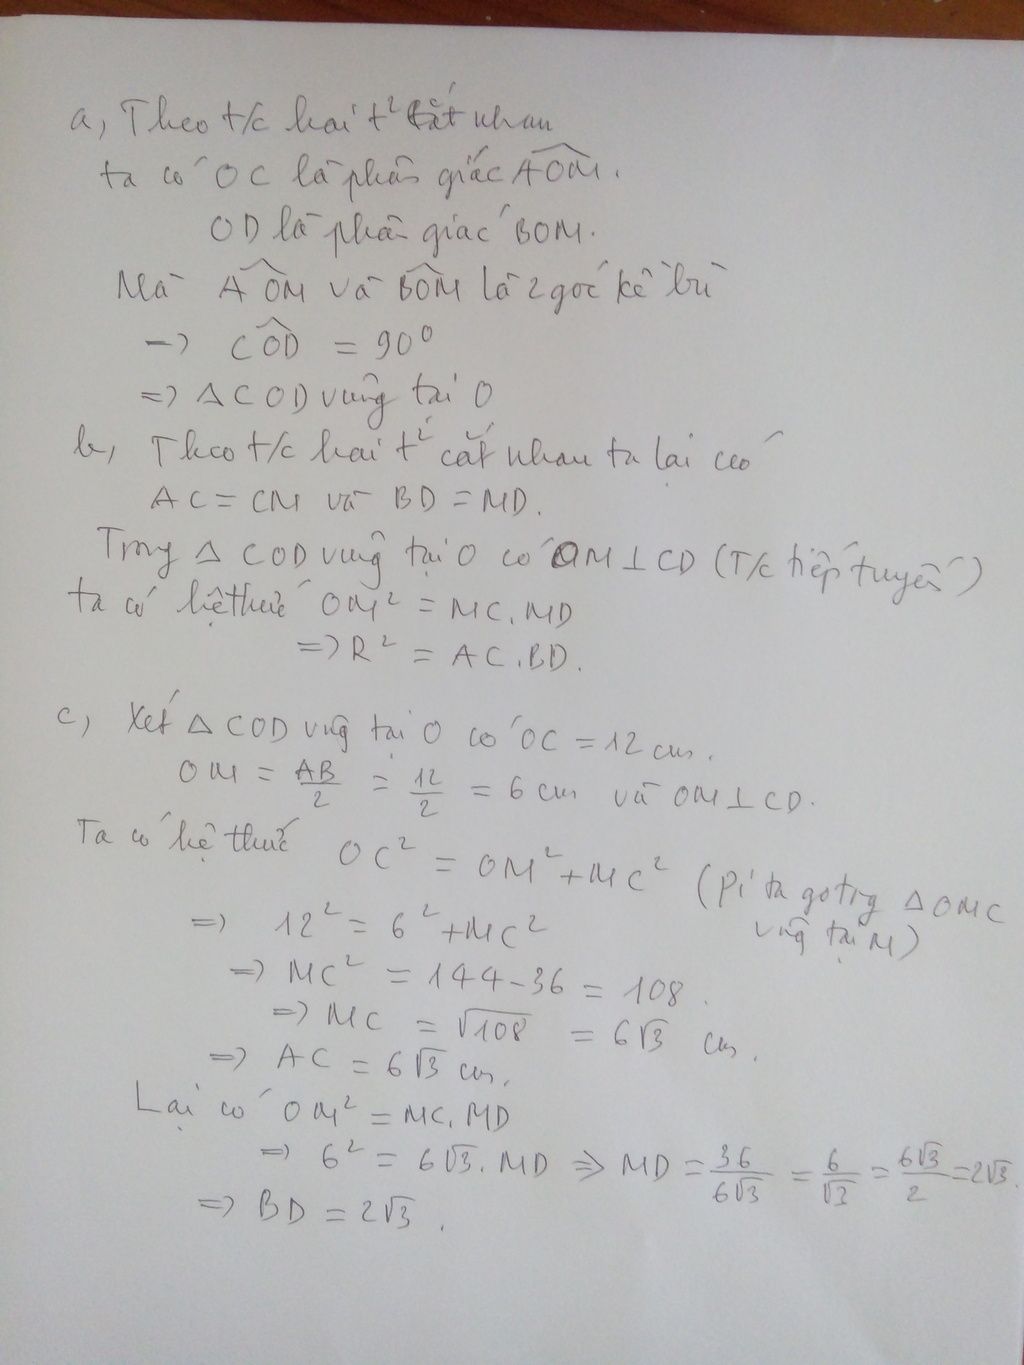 a, Theo t/c hai t² cắt nhau
ta có OC là phân giác \widehat{AOM}.
OD là phân giác BOM.
Mà \widehat{AOM} và \widehat{BOM} là 2 góc kề bù
→ \widehat{COD} = 90⁰
=> Δ COD vuông tại O
b, Theo t/c hai t² cắt nhau ta lại có
AC = CM và BD = MD.
Trong Δ COD vuông tại O có OM ⊥ CD (T/c tiếp tuyến)
ta có hệ thức OM² = MC.MD
=> R² = AC.BD.
c, Xét Δ COD vuông tại O có OC = 12 cm.
OM = \frac{AB}{2} = \frac{12}{2} = 6 cm và OM ⊥ CD.
Ta có hệ thức OC² = OM² + MC² (Pi ta go trg Δ OMC
vuông tại M)
=> 12² = 6² + MC²
=> MC² = 144 - 36 = 108.
=> MC = √108 = 6√3 cm.
=> AC = 6√3 cm.
Lại có OM² = MC.MD
=> 6² = 6√3.MD => MD = \frac{36}{6√3} = \frac{6}{√3} = \frac{6√3}{2} = 2√3.
=> BD = 2√3.